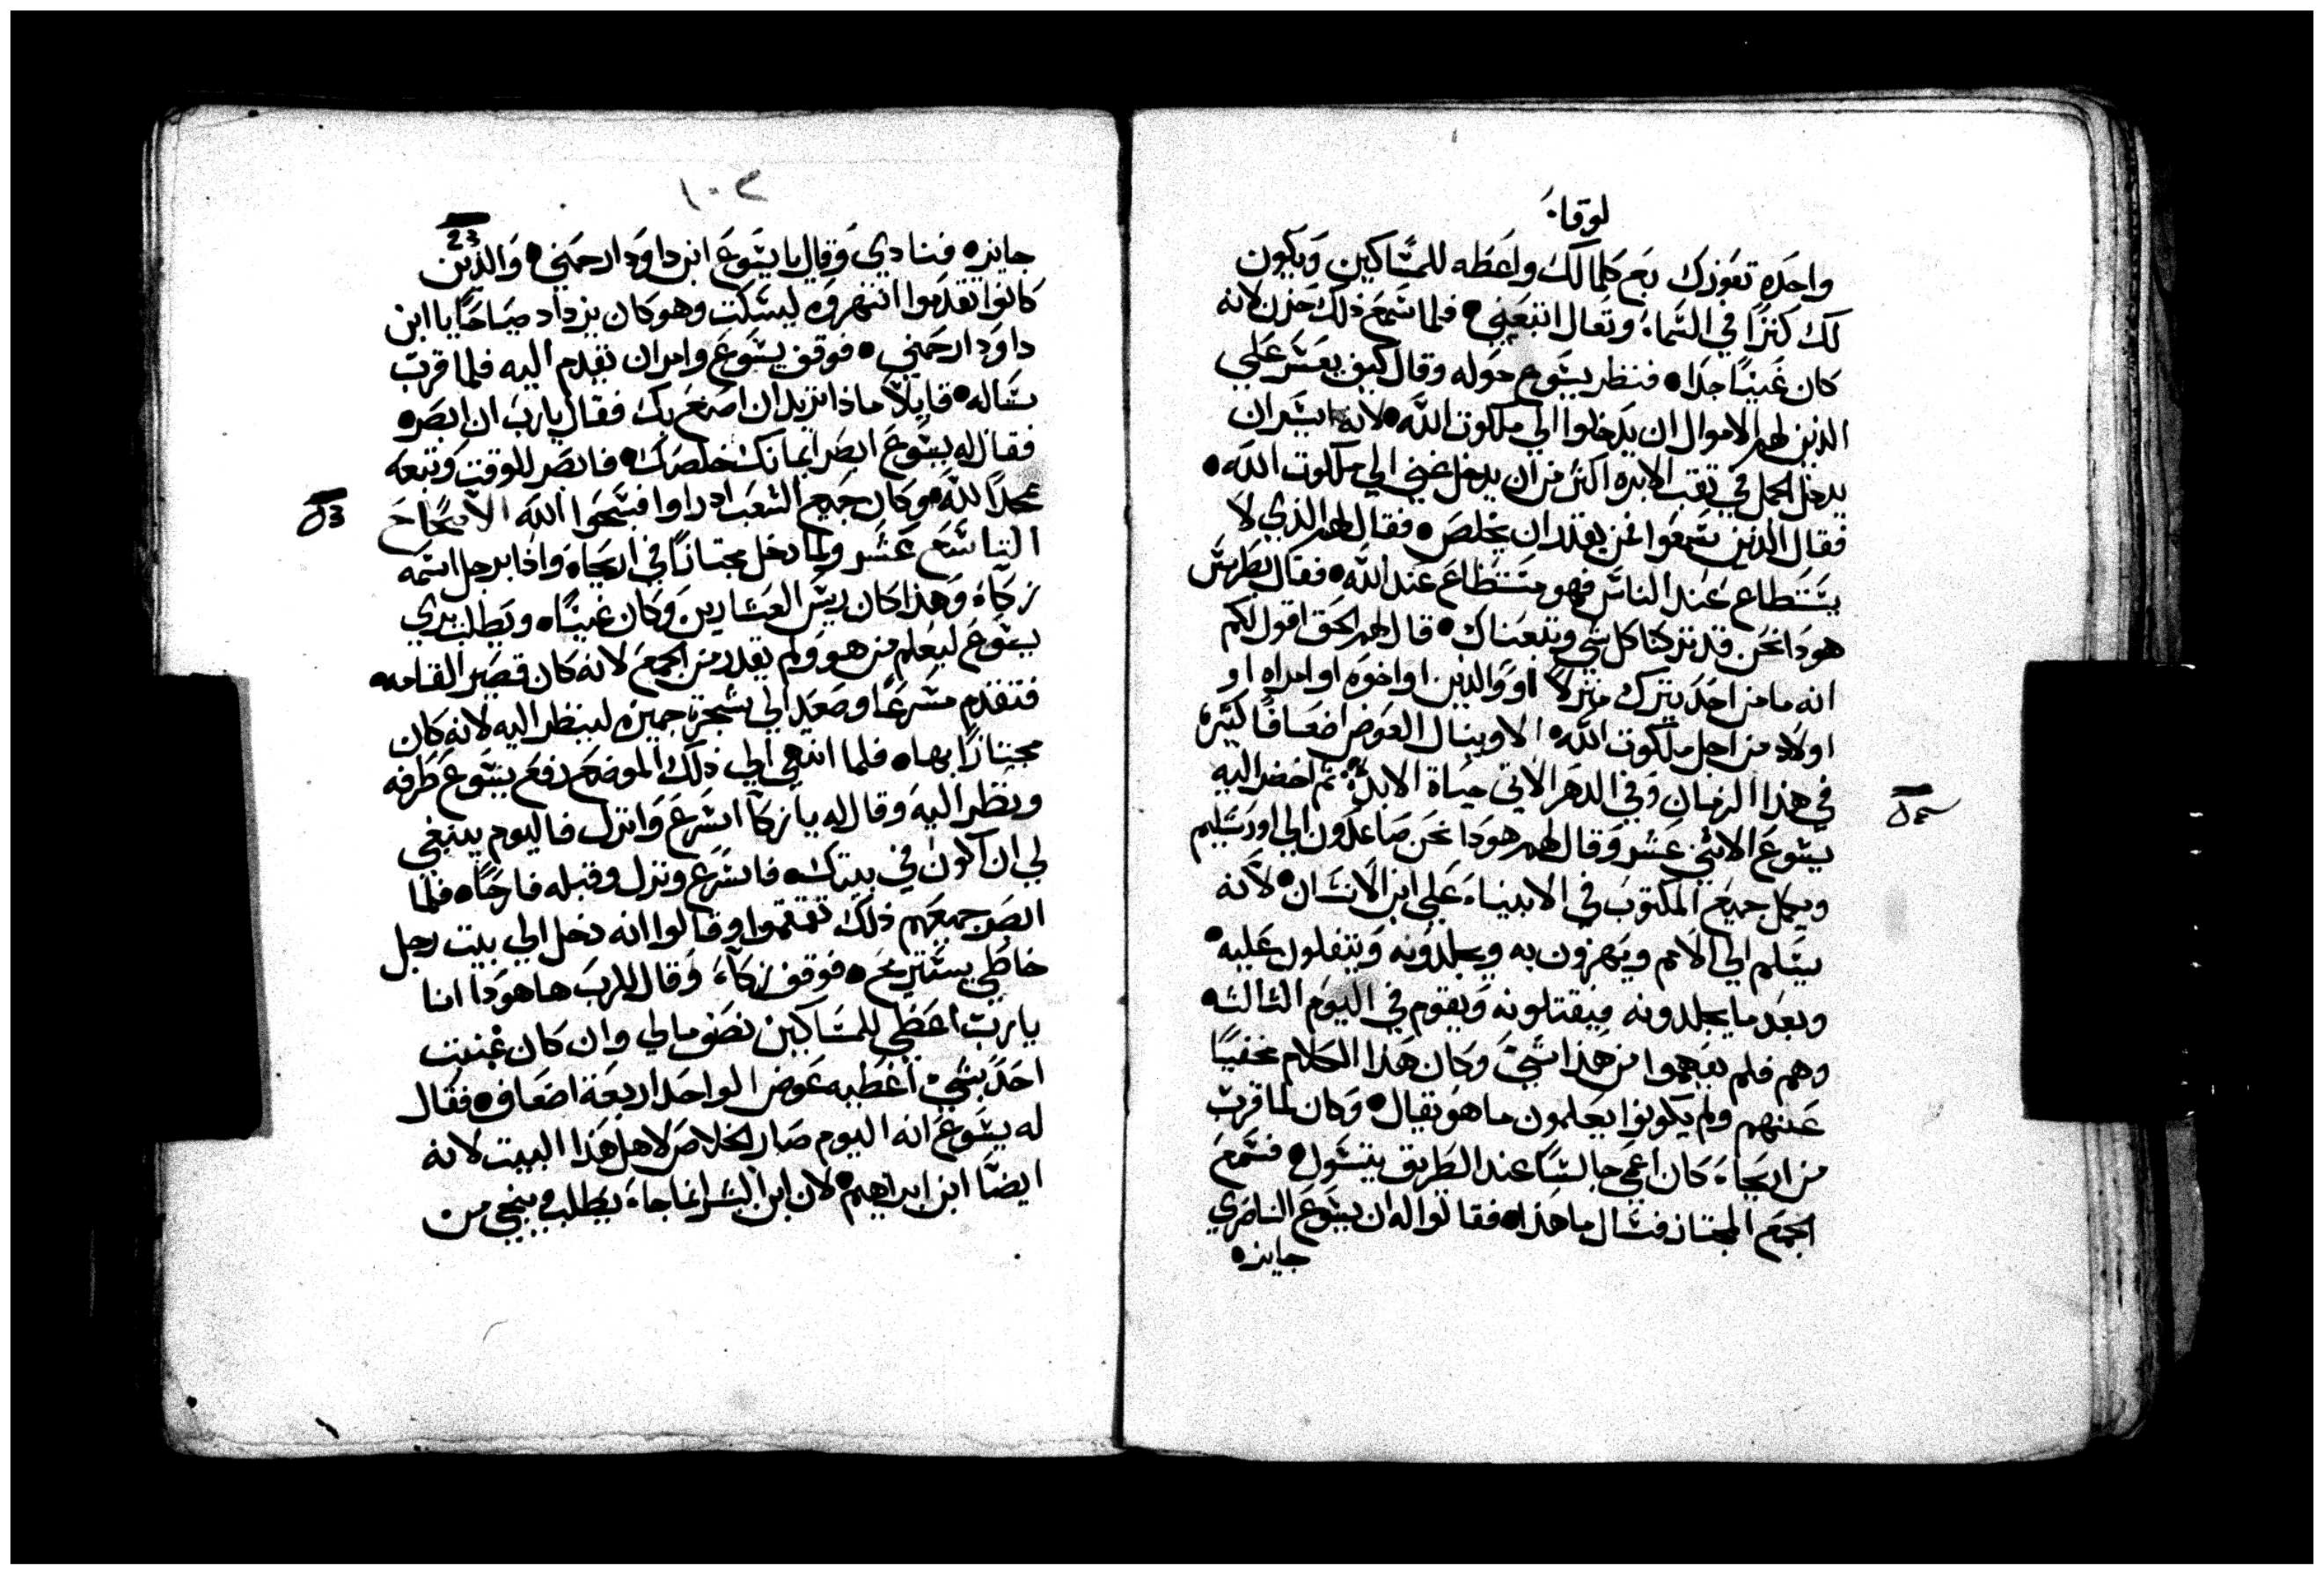 لوقا
واحده تعوزك بع كلما لك واعطه للمساكين ويكون
لك كنزًا في السماء وتعال اتبعني • فلما سمع ذلك حزن لانه
كان غنيًا جدا • فنظر يسوع حوله وقال كيف يعسر علي
الذين لهم الاموال ان يدخلوا الي ملكوت الله • لانه ايسر ان
يدخل الجمل في ثقب الابره اكثر من ان يدخل غني الي ملكوت الله •
فقال الذين سمعوا فمن يقدر ان يخلص • فقال لهم الذي لا
يستطاع عند الناس فهو مستطاع عند الله • فقال بطرس
هودا نحن قد تركنا كل شي وتبعناك • قال لهم الحق اقول لكم
انه ما من احد يترك منزلاً او والدين او اخوه او امراه او
اولاد من اجل ملكوت الله الا وينال العوض اضعافًا كثيره
في هذا الزمان وفي الدهر الاتي حياة الابد • ثم احضر اليه
يسوع الاثني عشر وقال لهم هودا نحن صاعدون الي اورشليم
ويكمل جميع المكتوب في الانبياء علي ابن الانسان • لانه
يسلم الي الامم ويهزون به ويجلدونه ويتفلون عليه •
وبعد ما يجلدونه فيقتلونه ويقوم في اليوم الثالث •
وهم فلم يفهموا من هذا شيء وكان هذا الكلام مخفيًا
عنهم ولم يكونوا يعلمون ما هو يقال • وكان لما قرب
من اريحاء كان اعمي جالسًا عند الطريق يتسول • فسمع
الجمع المجتاز فسال ما هذا • فقالوا له ان يسوع الناصري
جايز •
١٠٢
23
جايز • فنادي وقال يا يسوع ابن داود ارحمني • والذين
كانوا تقدموا انتهروه ليسكت وهو كان يزداد صياحًا يا ابن
داود ارحمني • فوقف يسوع وامر ان تقدم اليه فلما قرب
ساله • قايلاً ماذا تريد ان اصنع بك فقال يا رب ان ابصر •
فقال له يسوع ابصر ايمانك خلصك • فابصر للوقت وتبعه
ممجدًا لله • وكان جميع الشعب اد راوا فسبحوا الله الاصحاح
التاسع عشر ولما دخل مجتازًا في اريحاء واذا برجل اسمه
زكاء وهذا كان ريس العشارين وكان غنيًا • ويطلب يري
يسوع ليعلم من هو ولم يقدر من الجمع لانه كان قصير القامه •
فتقدم مسرعًا وصعد الي شجرة جميزه لينظر اليه لانه كان
مجتازًا بها • فلما انتهي الي ذلك الموضع رفع يسوع طرفه
ونظر اليه وقال له يا زكا اسرع وانزل فاليوم ينبغي
لي ان اكون في بيتك • فاسرع ونزل وقبله فارحًا • فلما
ابصر جميعهم ذلك تقمقموا وقالوا انه دخل الي بيت رجل
خاطي يستريح • فوقف زكاء وقال للرب ها هودا انا
يا رب اعطي للمساكين نصف مالي وان كان غبنت
احد بشيء اعطيه عوض الواحد اربعة اضعاف • فقال
له يسوع انه اليوم صار الخلاص لاهل هذا البيت لانه
ايضًا ابن ابراهيم • لان ابن البشر انما جاء يطلب وينجي من